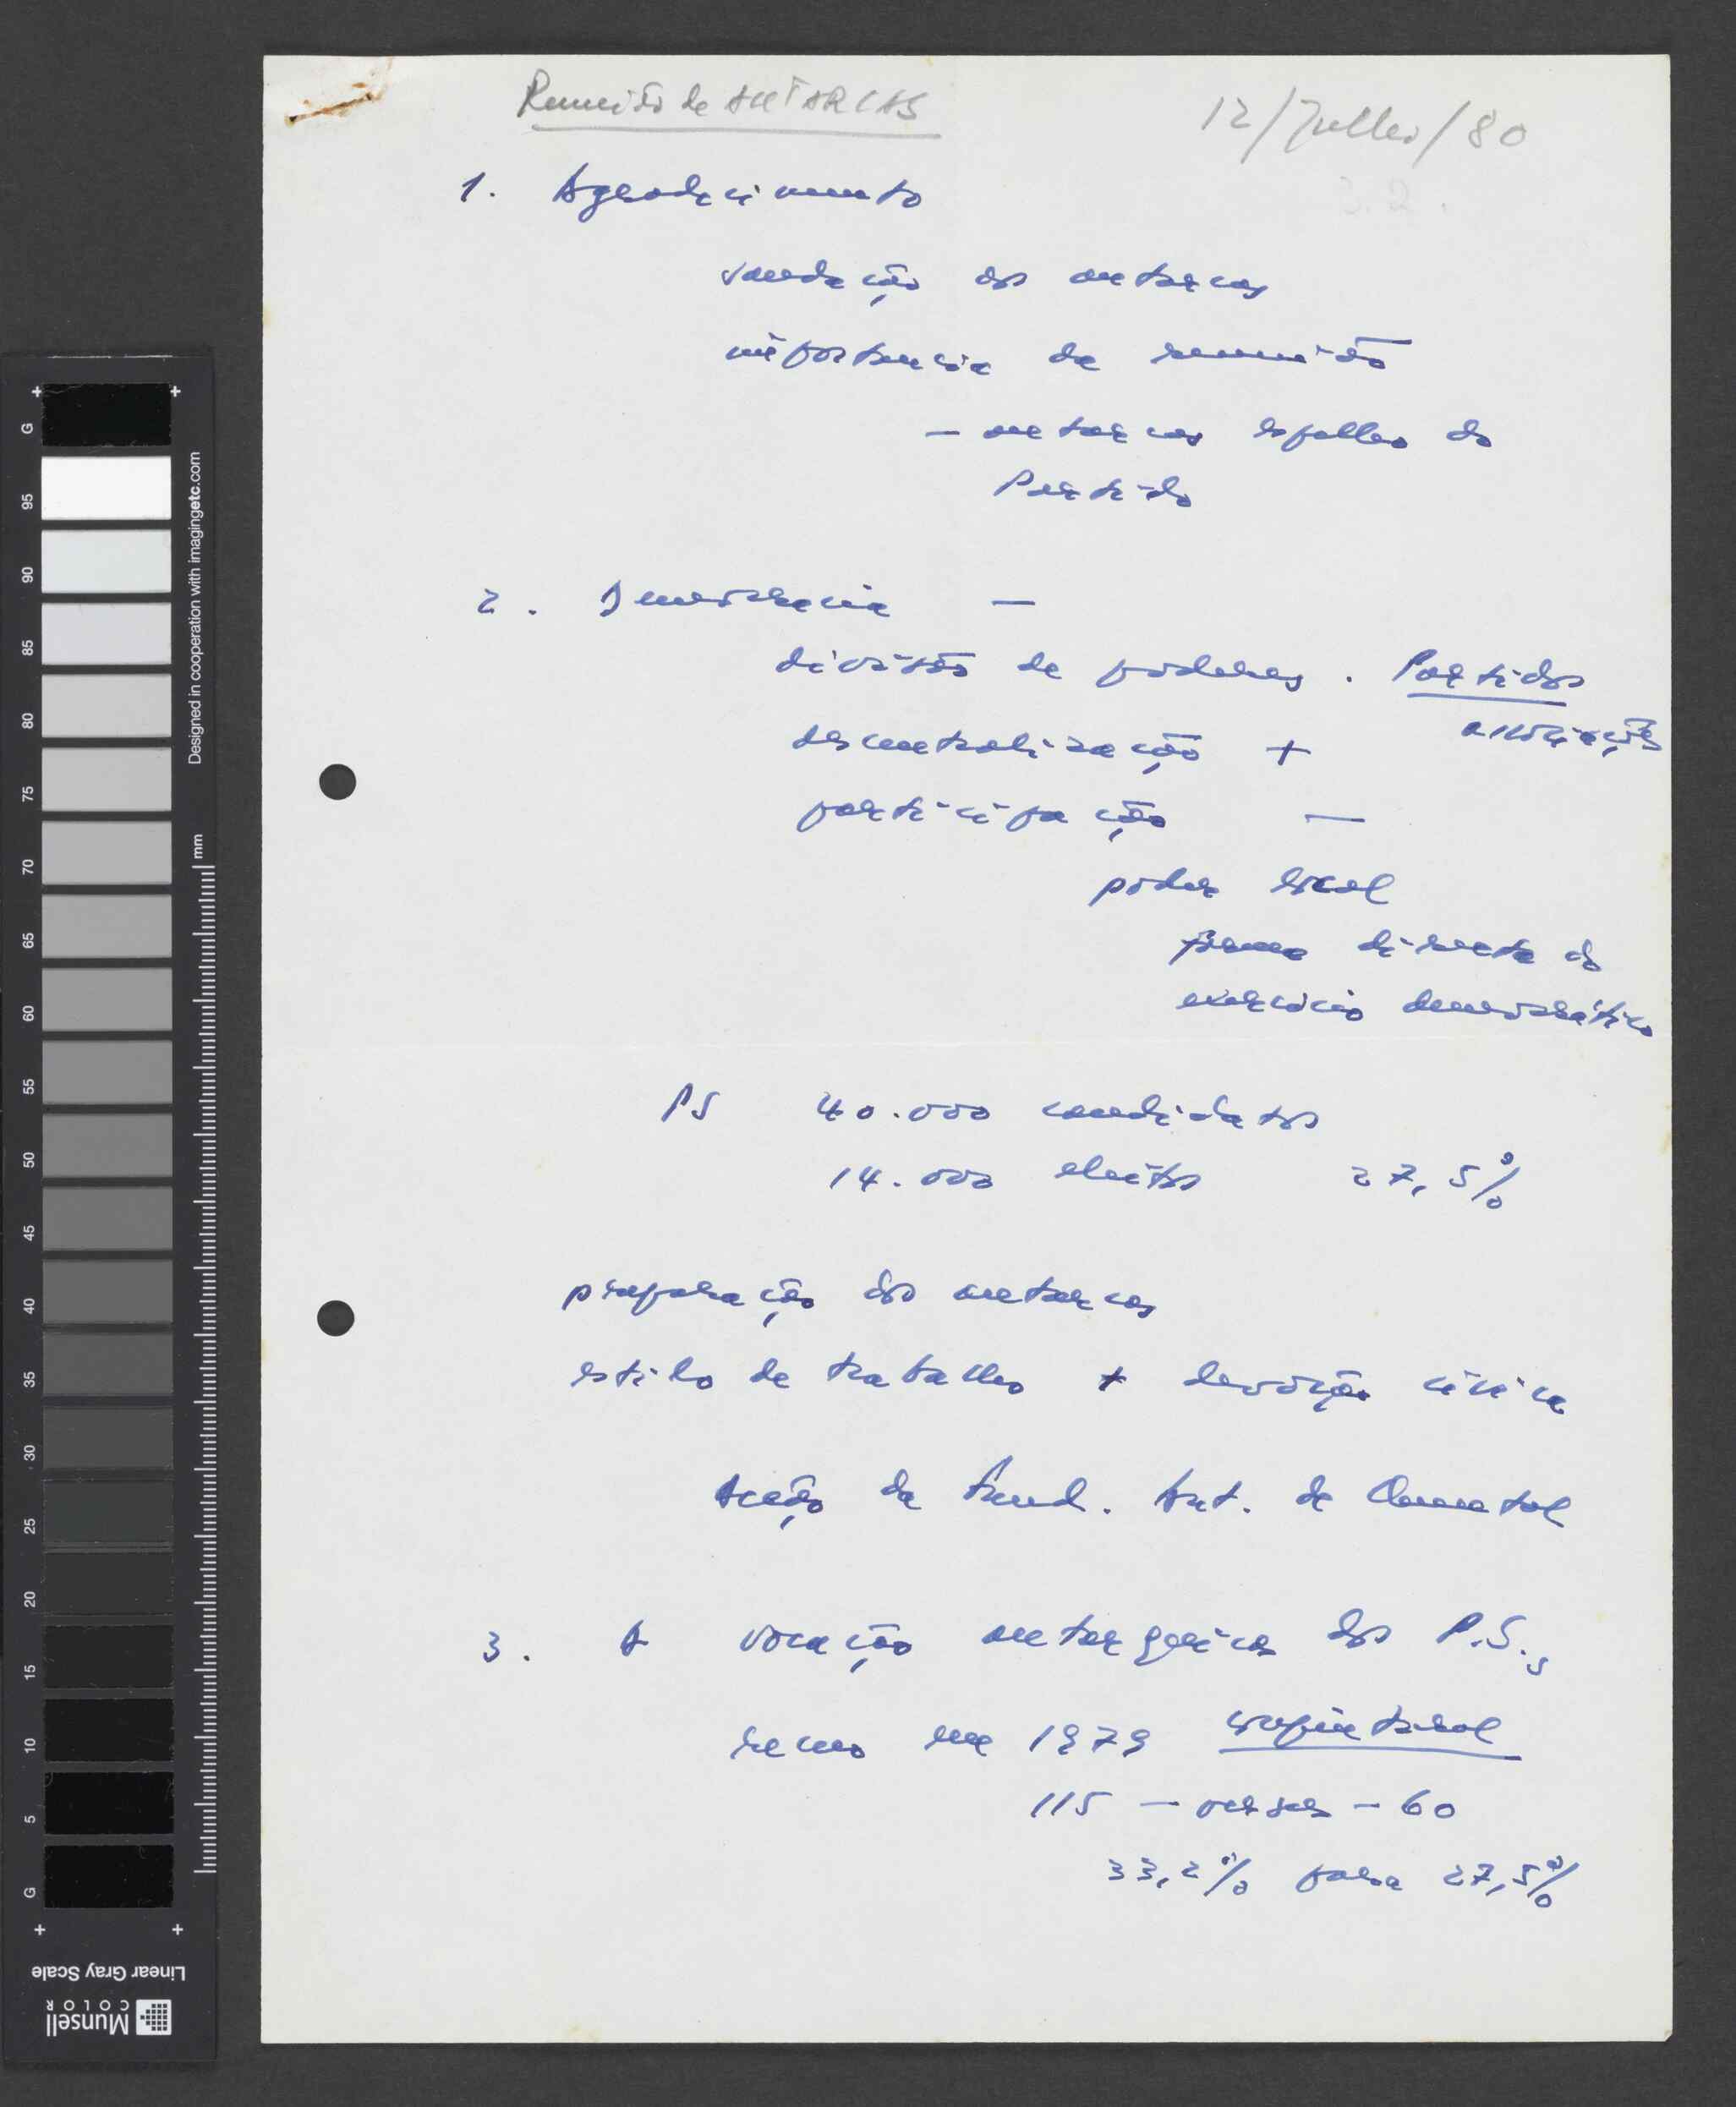 Reunião de AUTARCAS
12/Julho/80
1. Agradecimento
saudação aos autarcas
importancia da reunião
- autarcas espelho do
Partido
2. Democracia -
divisão de poderes. Partidos
associações
descentralização +
participação -
poder local
forma directa do
exercício democrático
PS 40.000 candidatos
14.000 eleitos 27,5%
preparação dos autarcas
estilo de trabalho + devoção cívica
Acção da Fund. Ant. de Quental
3. A vocação autárquica dos P.S.s
recuo em 1979
115 - versus - 60
33,2% para 27,5%
G
95
90
85
80
75
70
65
60
55
50
45
40
35
30
25
20
15
10
5
G
mm
Designed in cooperation with imagingetc.com
Linear Gray Scale
Munsell
COLOR